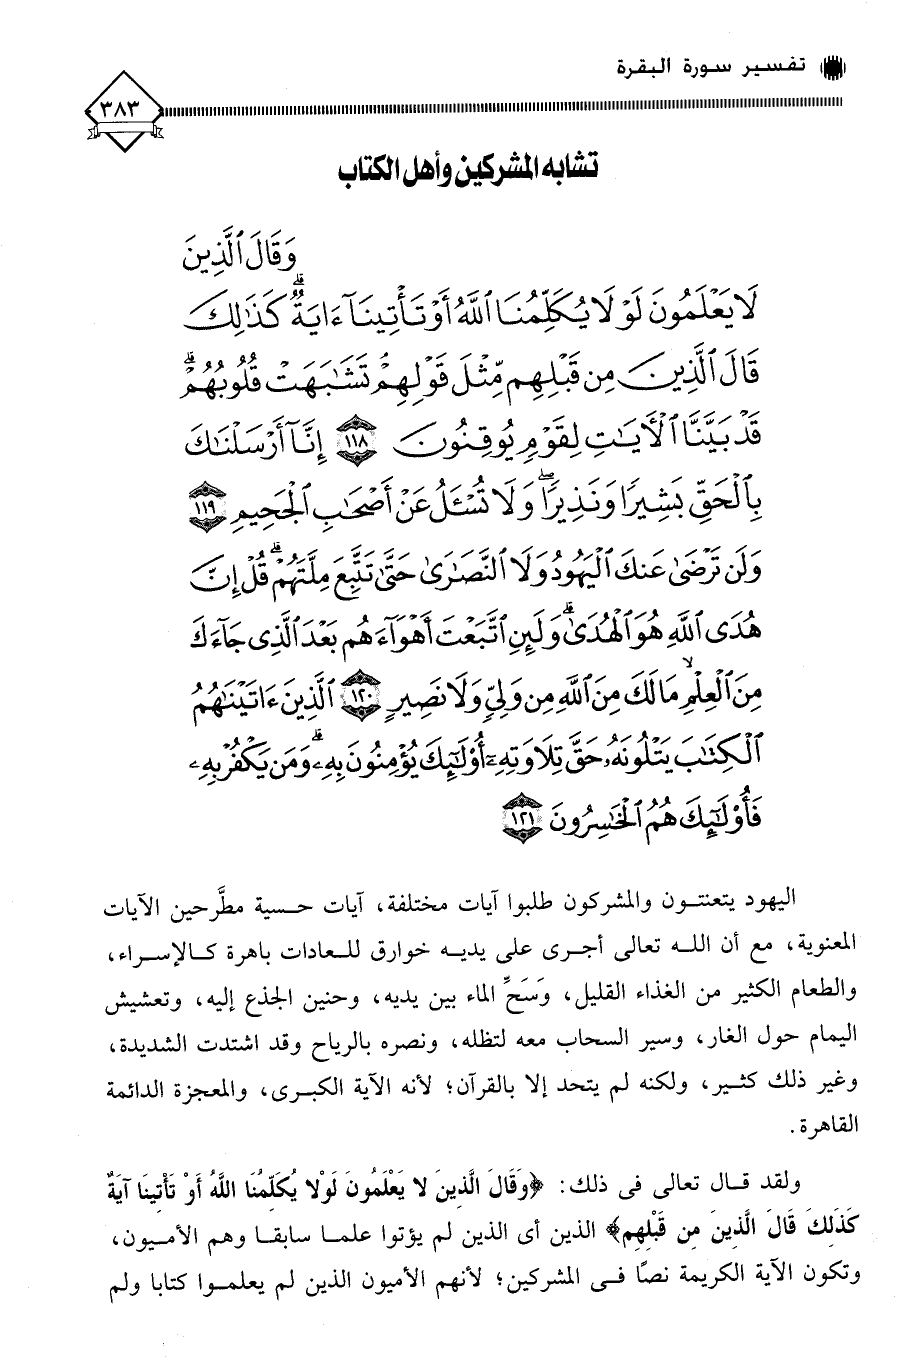 تفسير سورة البقرة
٣٨٣
تشابه المشركين وأهل الكتاب
وَقَالَ ٱلَّذِينَ
لَا يَعْلَمُونَ لَوْلَا يُكَلِّمُنَا ٱللَّهُ أَوْ تَأْتِينَآ ءَايَةٌ ۗ كَذَٰلِكَ
قَالَ ٱلَّذِينَ مِن قَبْلِهِم مِّثْلَ قَوْلِهِمْ تَشَٰبَهَتْ قُلُوبُهُمْ ۗ
قَدْ بَيَّنَّا ٱلْءَايَٰتِ لِقَوْمٍ يُوقِنُونَ ١١٨ إِنَّآ أَرْسَلْنَٰكَ
بِٱلْحَقِّ بَشِيرًا وَنَذِيرًا ۖ وَلَا تُسْـَٔلُ عَنْ أَصْحَٰبِ ٱلْجَحِيمِ ١١٩
وَلَن تَرْضَىٰ عَنكَ ٱلْيَهُودُ وَلَا ٱلنَّصَٰرَىٰ حَتَّىٰ تَتَّبِعَ مِلَّتَهُمْ ۗ قُلْ إِنَّ
هُدَى ٱللَّهِ هُوَ ٱلْهُدَىٰ ۗ وَلَئِنِ ٱتَّبَعْتَ أَهْوَآءَهُم بَعْدَ ٱلَّذِى جَآءَكَ
مِنَ ٱلْعِلْمِ ۙ مَا لَكَ مِنَ ٱللَّهِ مِن وَلِىٍّ وَلَا نَصِيرٍ ١٢٠ ٱلَّذِينَ ءَاتَيْنَٰهُمُ
ٱلْكِتَٰبَ يَتْلُونَهُۥ حَقَّ تِلَاوَتِهِۦٓ أُو۟لَٰٓئِكَ يُؤْمِنُونَ بِهِۦ ۗ وَمَن يَكْفُرْ بِهِۦ
فَأُو۟لَٰٓئِكَ هُمُ ٱلْخَٰسِرُونَ ١٢١
اليهود يتعنتون والمشركون طلبوا آيات مختلفة، آيات حسية مطَّرحين الآيات
المعنوية، مع أن الله تعالى أجرى على يديه خوارق للعادات باهرة كالإسراء،
والطعام الكثير من الغذاء القليل، وَسَحِّ الماء بين يديه، وحنين الجذع إليه، وتعشيش
اليمام حول الغار، وسير السحاب معه لتظله، ونصره بالرياح وقد اشتدت الشديدة،
وغير ذلك كثير، ولكنه لم يتحد إلا بالقرآن؛ لأنه الآية الكبرى، والمعجزة الدائمة
القاهرة.
ولقد قال تعالى فى ذلك: ﴿وَقَالَ الَّذِينَ لا يَعْلَمُونَ لَوْلا يُكَلِّمُنَا اللَّهُ أَوْ تَأْتِينَا آيَةٌ
كَذَلِكَ قَالَ الَّذِينَ مِن قَبْلِهِم﴾ الذين أى الذين لم يؤتوا علما سابقا وهم الأميون،
وتكون الآية الكريمة نصًا فى المشركين؛ لأنهم الأميون الذين لم يعلموا كتابا ولم